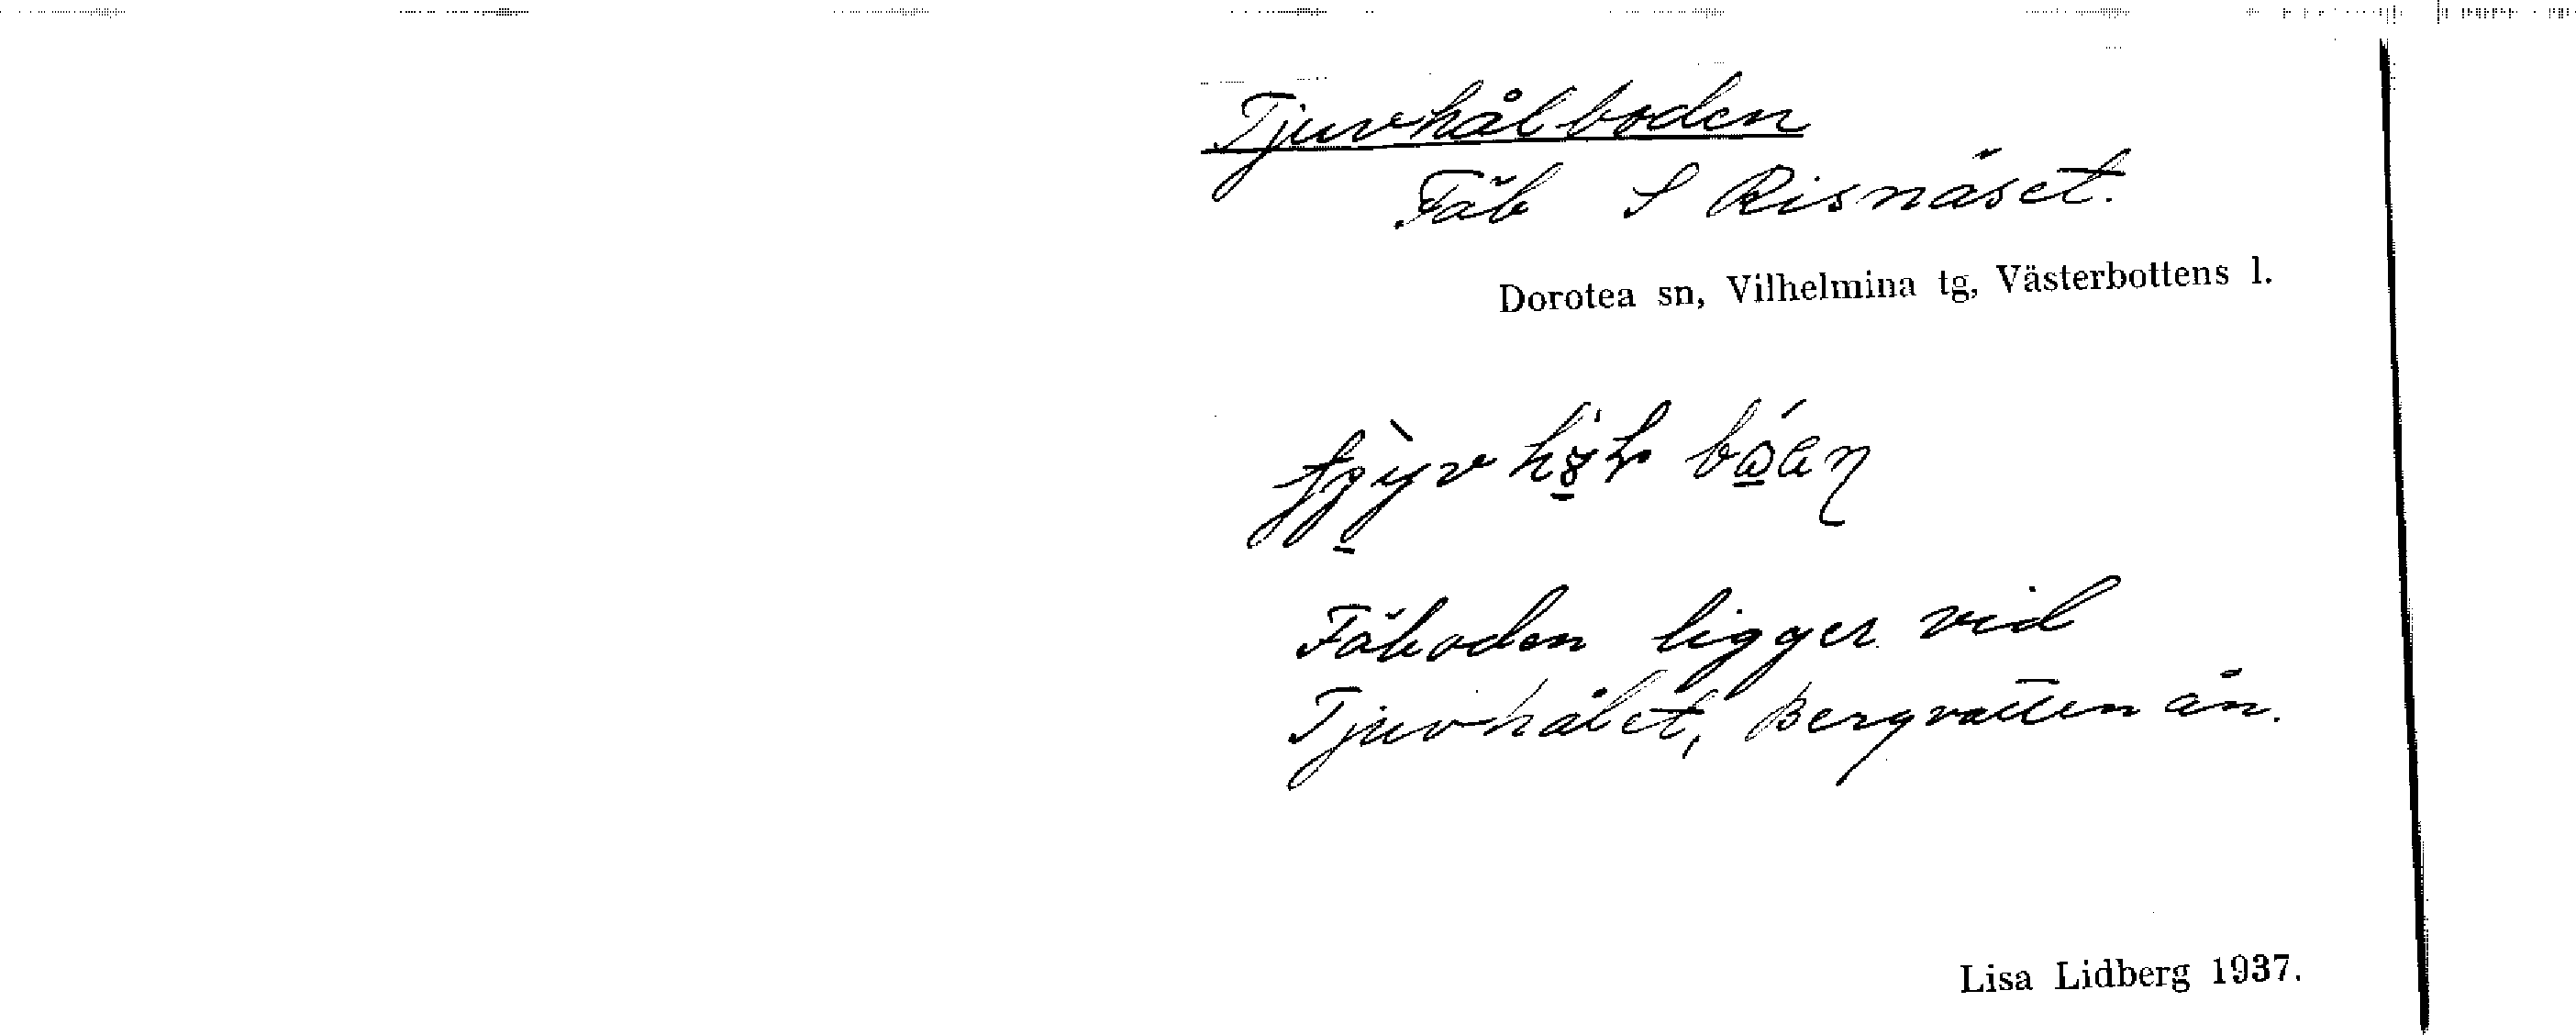 Tjuvhålboden
Fäb S Risnäset.
Dorotea sn, Vilhelmina tg, Västerbottens l.
Fäboden ligger vid
Tjuvhålet, Bergvattenån.
Lisa Lidberg 1937.